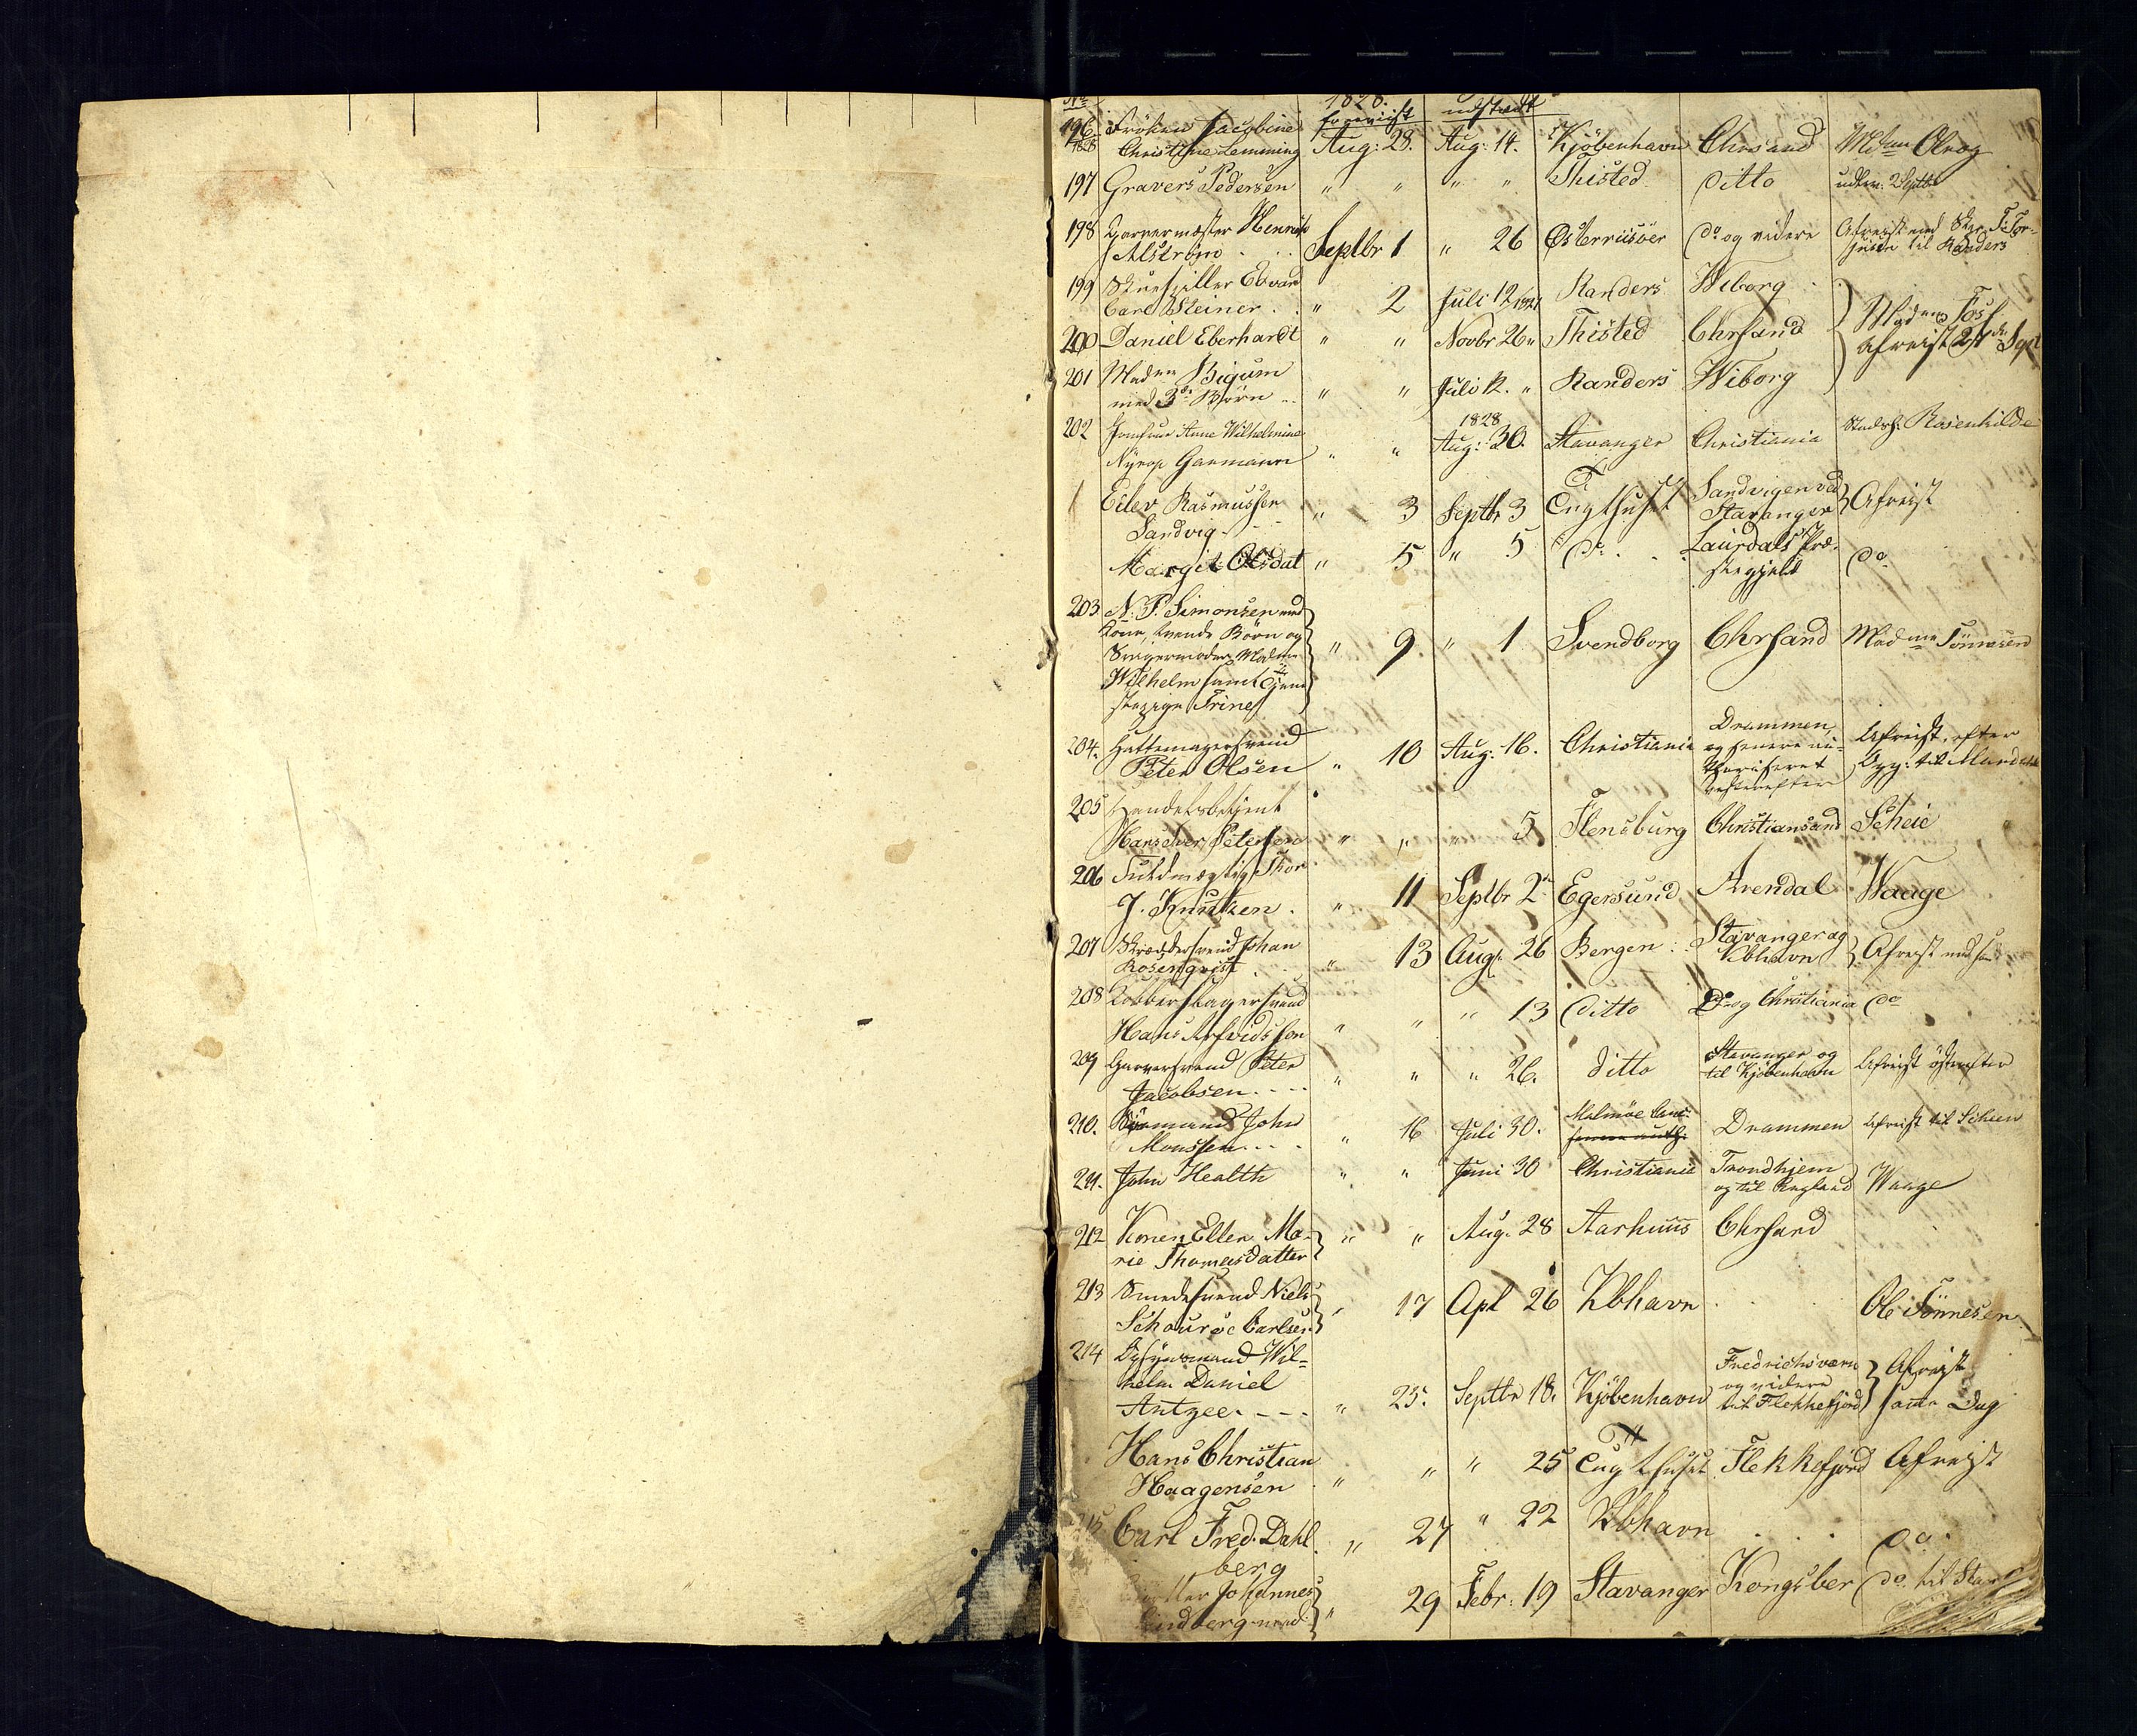 No 1828. udstædt
forevist
196 Fröken Jacobine
1828 Christine Lemming Aug: 28. Aug: 14. Kjöbenhavn Chrsand Mdm Olrog
197 Gravers Pedersen " " " " Thisted Ditto udkm. 2 Septbr
198 Garvermester Henrich
Alström Septbr 1 " 26 Österriisöer do og videre Afreist med Skr. T. Tor-
til Randers
199 Skuespiller Edvard
Carl Steiner . " 2 Juli 12 1821 Randers Wiborg
200 Daniel Eberhardt " " Novbr 26 " Thisted Chrsand Madme Foss
afreist 27de Sept
201 Madme Bigum
med 3de Börn " " Juli 12. " Randers Wiborg
202 Jomfrue Anne Wilhelmine
Nyrop Garmann " " 1828 Aug: 30. Stavanger Christiania Stadsh: Rosenkilde
Eilev Rasmussen
Sandvig " 3 Septbr 3 Tugthuset Sandvigen ved
Stavanger Afreist
Margit Olsdat " 5 " 5 do . . Laurdals Præ-
stegjeld do.
203 N. P. Simonsen med
Kone, tvende Börn og
Svigermoder Madme
Wilhelm samt Tjene
stepige Trine " 9 " 1 Svendborg Chrsand Madme Tönnesen
204. Hattemagersvend
Peter Olsen " 10 Aug: 16. Christiania Drammen
og senere
vesterefter Afreist, efter
Opg: til Mandal
205 Handelsbetjent
Petersen " " " 5 Flensburg Christiansand Scheie
206 Fuldmægtig Thor
J. Knutzen . " 11 Septbr 2 Egersund Arendal Waage
207 Skræddersvend Johan
Rosenqvist " 13 Aug: 26 Bergen Stavanger og
Kbhavn Afreist
208 Kobberslagersvend
Hans Arfvidsson " " " 13 Ditto Do og Christiania do
209 Garversvend Peter
Jacobsen. - - - " " " 26. Ditto Stavanger og
til Kjöbenhavn Afreist österefter
210. Sömand John
Monssen - - - " 16 Juli 30. Malmöe Drammen Afreist til Scheen
211. John Health " " Juni 30 Christiania Trondhjem
og til England Waage
212 Konen Ellen Ma-
rie Thomasdatter " " Aug: 28 Aarhuus Chrsand
213 Smedesvend Niels
Schouröe Carlsen " 17 Apl 26 Kbhavn . . . Ole Tönnesen
214 Opsynsmand Wil-
helm Daniel
Antzee. - - - " 25. Septbr 18. Kjöbenhavn Fredrichsværn
og videre
til Flekkefjord Afreist
samme Dag
Hans Christian
Haagensen " " " 25 Tugthuset Flekkefjord Afreist
215 Carl Fred. Dahl
berg " 27 " 22 Kbhavn . . . do.
Johannes
Lindberg med " 29 Febr: 19 Stavanger Kongsber do. til